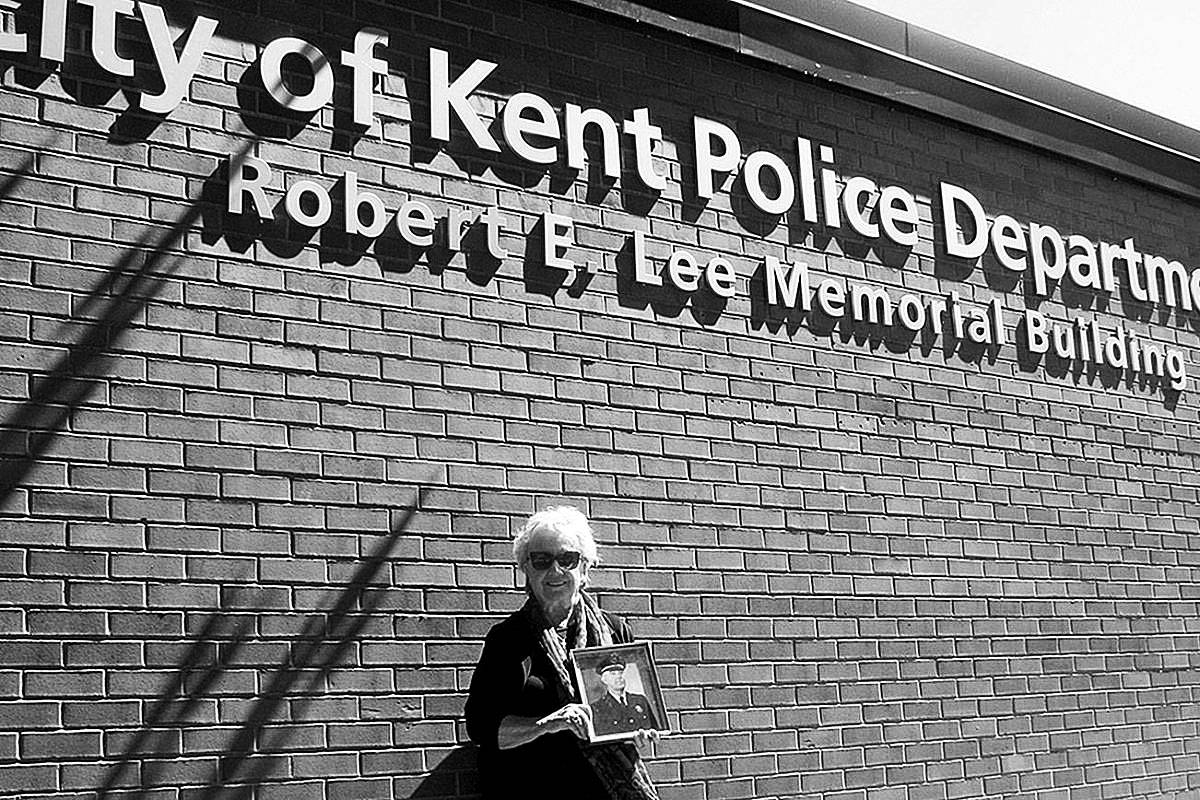 City of Kent Police Departme
Robert E. Lee Memorial Building